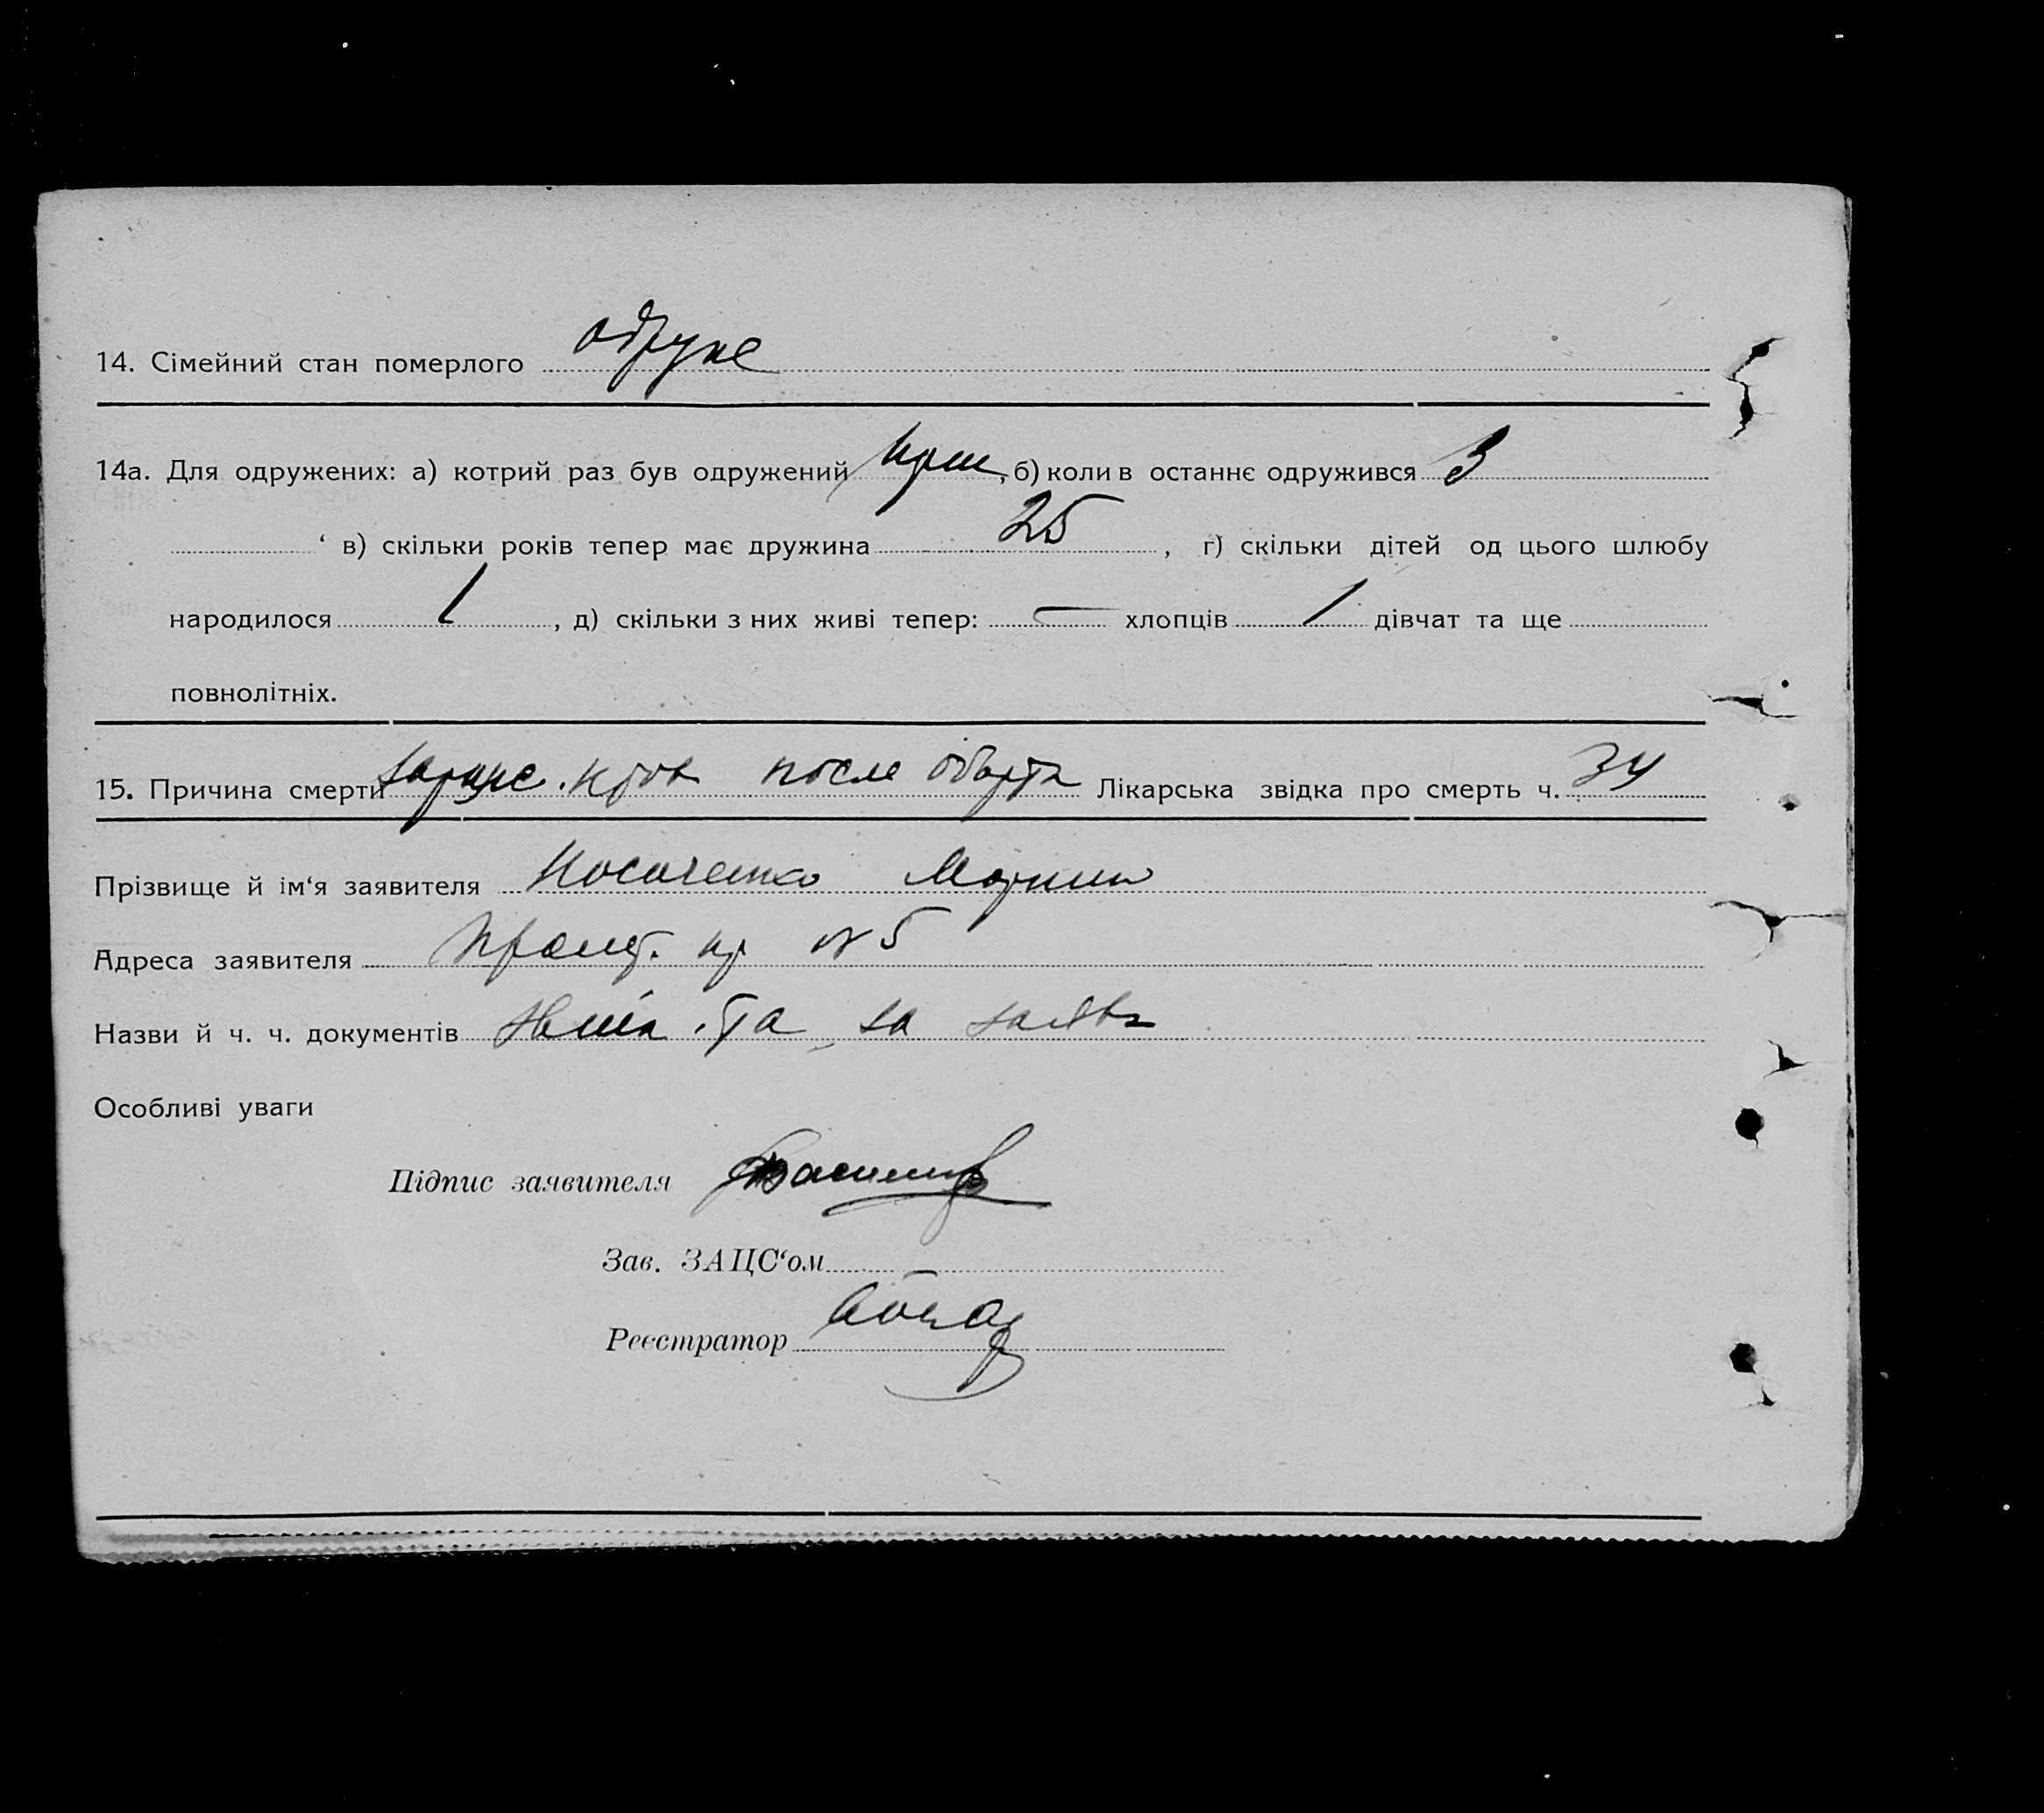 14. Сімейний стан померлого одруже
14а. Для одружених: а) котрий раз був одружений перш, б) коли в останнє одружився 3
‘ в) скільки років тепер має дружина 25, г) скільки дітей од цього шлюбу
народилося 1, д) скільки з них живі тепер: — хлопців 1 дівчат та ще
повнолітніх.
15. Причина смерти зараже. кров после аборта Лікарська звідка про смерть ч. 34
Прізвище й ім‘я заявителя Носаченко
Адреса заявителя № 5
Назви й ч. ч. документів та за заяв
Особливі уваги
Підпис заявителя
Зав. ЗАЦС‘ом
Реєстратор